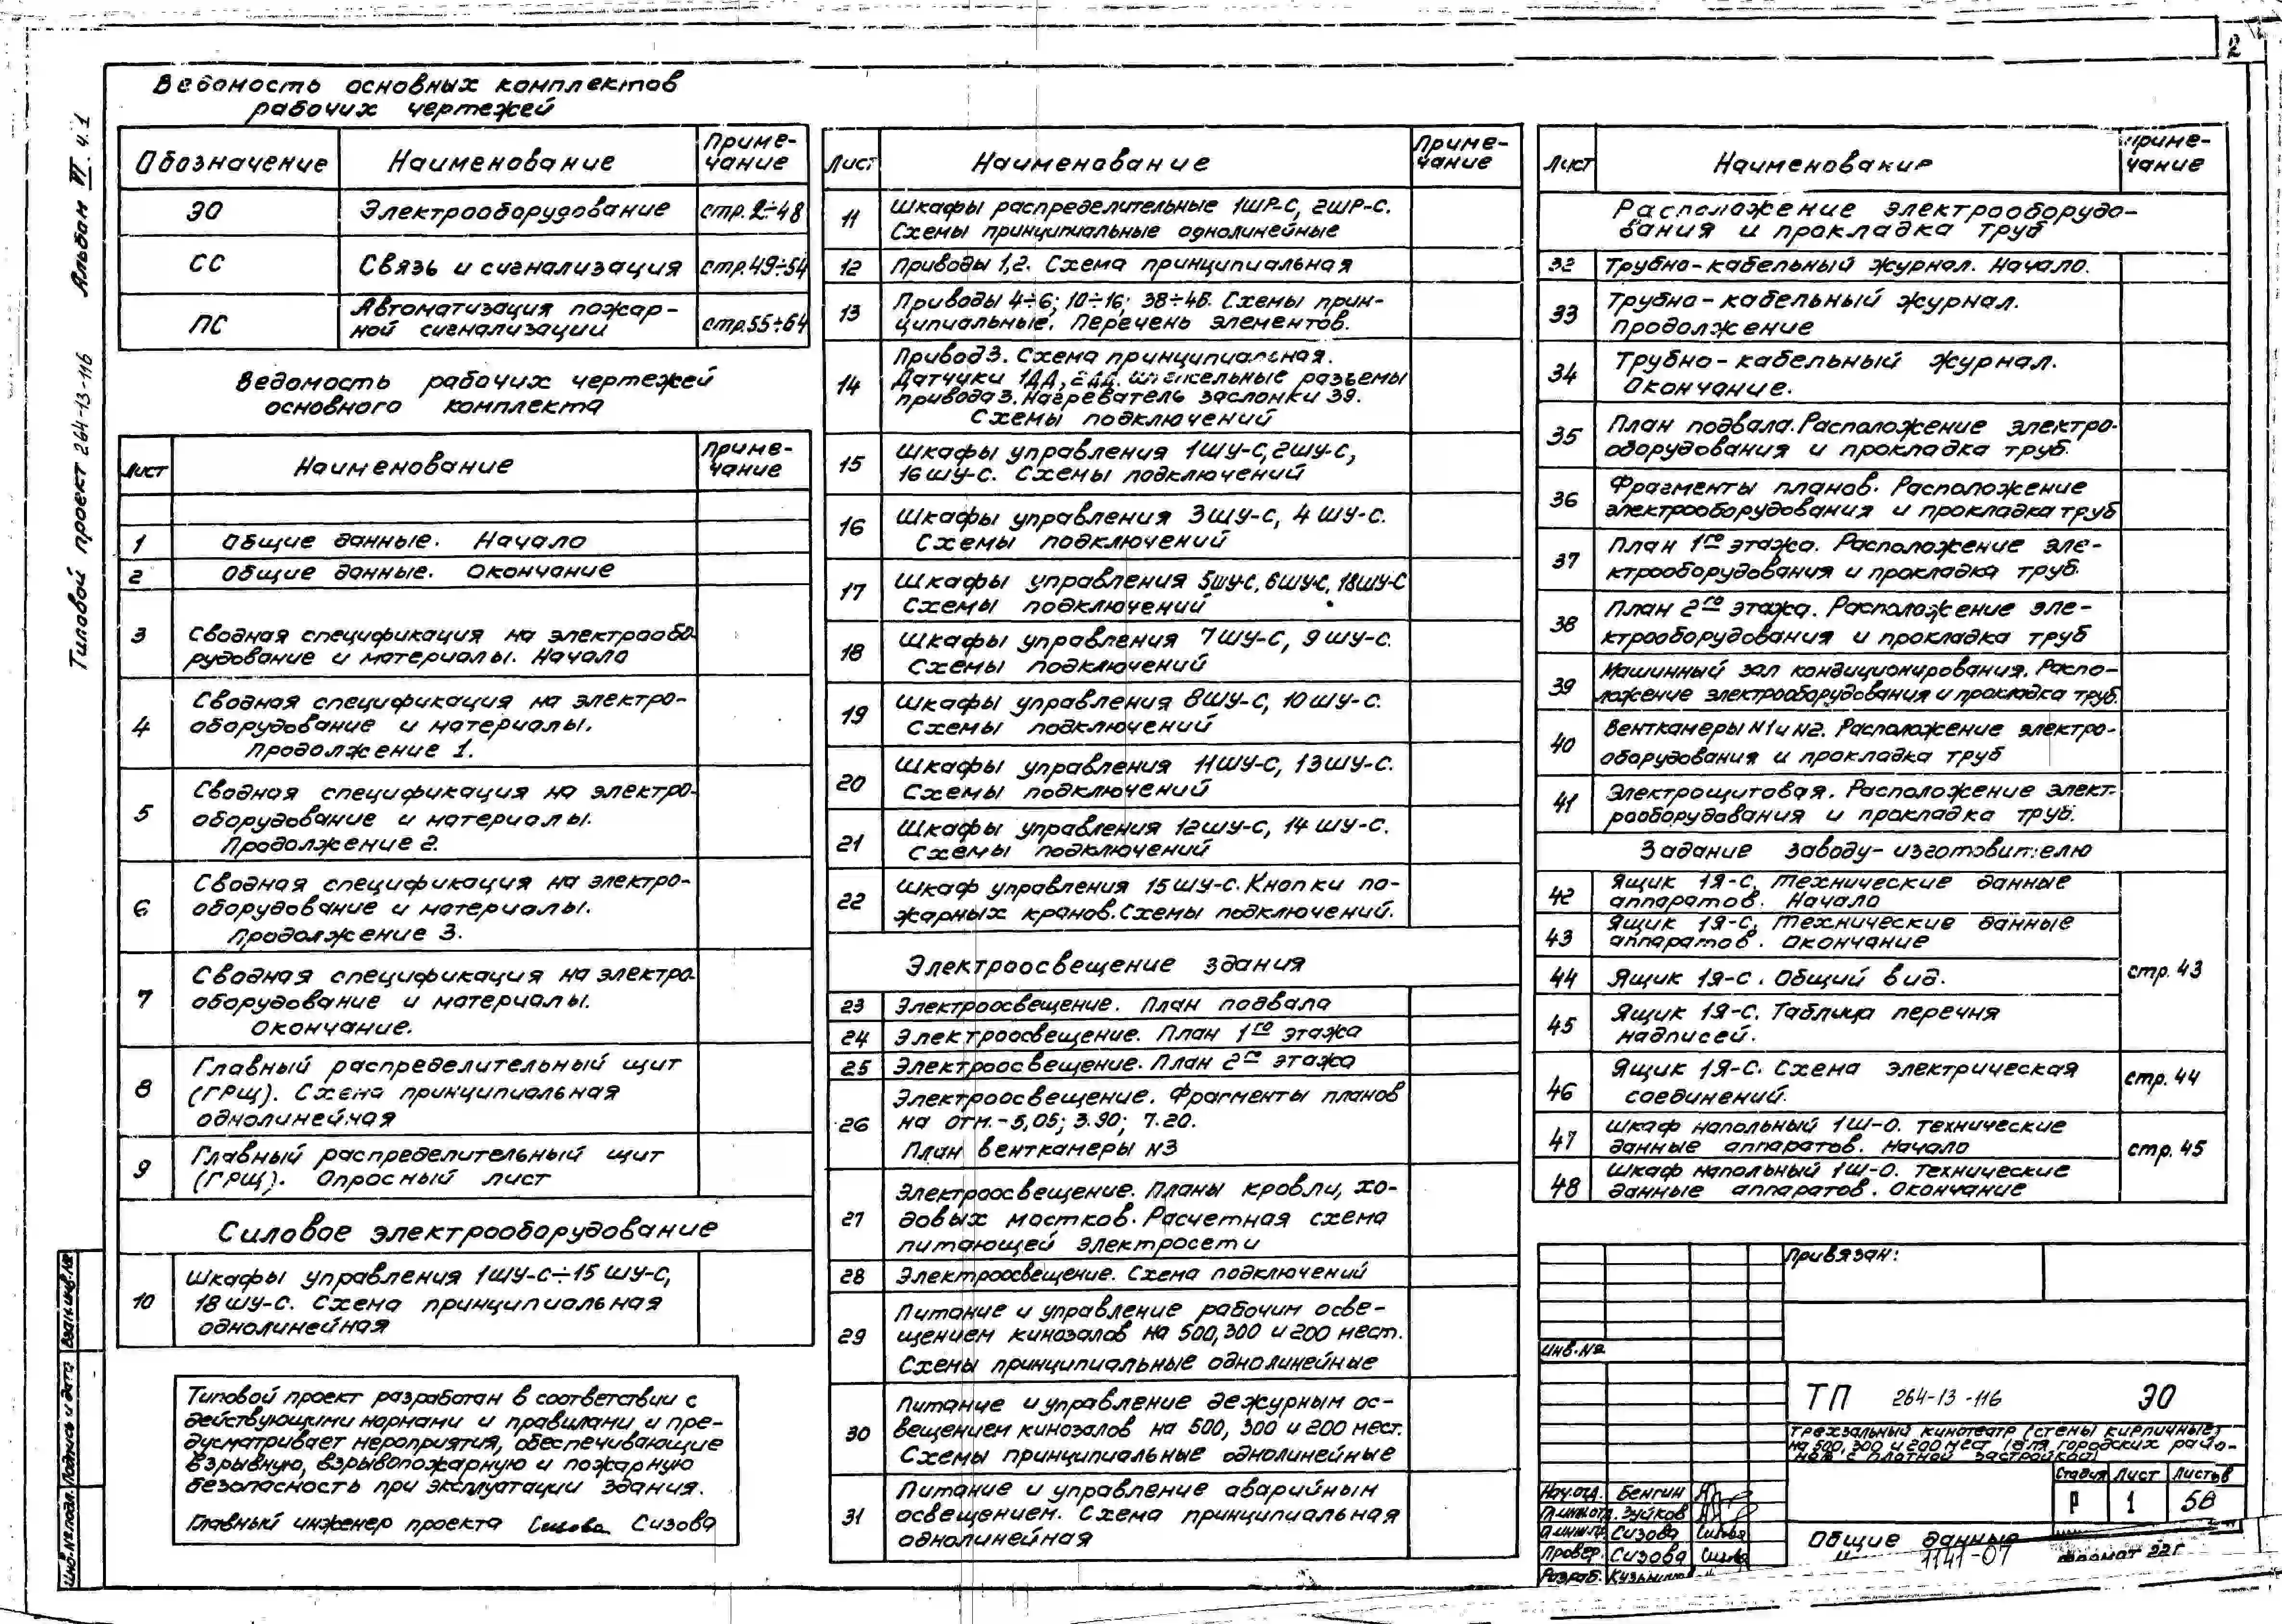 2
Альбом VI ч.1
Типовой проект 264-13-116
Ведомость основных комплектов
рабочих чертежей
Обозначение
Наименование
Приме-
чание
ЭО
Электрооборудование
стр. 2÷48
СС
Связь и сигнализация
стр.49÷54
ПС
Автоматизация пожар-
ной сигнализации
стр.55÷64
Ведомость рабочих чертежей
основного комплекта
Лист
Наименование
Приме-
чание
1
Общие данные. Начало
2
Общие данные. Окончание
3
Сводная спецификация на электрообо-
рудование и материалы. Начало
4
Сводная спецификация на электро-
оборудование и материалы.
Продолжение 1.
5
Сводная спецификация на электро-
оборудование и материалы.
Продолжение 2.
6
Сводная спецификация на электро-
оборудование и материалы.
Продолжение 3.
7
Сводная спецификация на электро-
оборудование и материалы.
Окончание.
8
Главный распределительный щит
(ГРЩ). Схема принципиальная
однолинейная
9
Главный распределительный щит
(ГРЩ). Опросный лист
Силовое электрооборудование
10
Шкафы управления 1ШУ-С÷15 ШУ-С,
18 ШУ-С. Схема принципиальная
однолинейная
Типовой проект разработан в соответствии с
действующими нормами и правилами и пре-
дусматривает мероприятия, обеспечивающие
взрывную, взрывопожарную и пожарную
безопасность при эксплуатации здания.
Главный инженер проекта Сизова Сизова
Лист
Наименование
Приме-
чание
11
Шкафы распределительные 1ШР-С, 2ШР-С.
Схемы принципиальные однолинейные
12
Приводы 1,2. Схема принципиальная
13
Приводы 4÷6; 10÷16; 38÷46. Схемы прин-
ципиальные. Перечень элементов.
14
Привод 3. Схема принципиальная.
Датчики 1ДД, 2ДД. Штепсельные разъемы
привода 3. Нагреватель заслонки 39.
Схемы подключений
15
Шкафы управления 1ШУ-С, 2ШУ-С,
16 ШУ-С. Схемы подключений
16
Шкафы управления 3 ШУ-С, 4 ШУ-С.
Схемы подключений
17
Шкафы управления 5ШУ-С, 6ШУ-С, 18ШУ-С
Схемы подключений
18
Шкафы управления 7 ШУ-С, 9 ШУ-С.
Схемы подключений
19
Шкафы управления 8ШУ-С, 10 ШУ-С.
Схемы подключений
20
Шкафы управления 11ШУ-С, 13 ШУ-С.
Схемы подключений
21
Шкафы управления 12 ШУ-С, 14 ШУ-С.
Схемы подключений
22
Шкаф управления 15 ШУ-С. Кнопки по-
жарных кранов. Схемы подключений.
Электроосвещение здания
23
Электроосвещение. План подвала
24
Электроосвещение. План 1го этажа
25
Электроосвещение. План 2го этажа
26
Электроосвещение. Фрагменты планов
на отм. -5,05; 3.90; 7.20.
План венткамеры N3
27
Электроосвещение. Планы кровли, хо-
довых мостков. Расчетная схема
питающей электросети
28
Электроосвещение. Схема подключений
29
Питание и управление рабочим осве-
щением кинозалов на 500, 300 и 200 мест.
Схемы принципиальные однолинейные
30
Питание и управление дежурным ос-
вещением кинозалов на 500, 300 и 200 мест.
Схемы принципиальные однолинейные
31
Питание и управление аварийным
освещением. Схема принципиальная
однолинейная
Лист
Наименование
Приме-
чание
Расположение электрооборудо-
вания и прокладка труб
32
Трубно-кабельный журнал. Начало.
33
Трубно-кабельный журнал.
Продолжение
34
Трубно-кабельный журнал.
Окончание.
35
План подвала. Расположение электро-
оборудования и прокладка труб.
36
Фрагменты планов. Расположение
электрооборудования и прокладка труб
37
План 1го этажа. Расположение эле-
ктрооборудования и прокладка труб.
38
План 2го этажа. Расположение эле-
ктрооборудования и прокладка труб
39
Машинный зал кондиционирования. Распо-
ложение электрооборудования и прокладка труб.
40
Венткамеры N1 и N2. Расположение электро-
оборудования и прокладка труб
41
Электрощитовая. Расположение элект-
рооборудования и прокладка труб.
Задание заводу-изготовителю
42
Ящик 1Я-С. Технические данные
аппаратов. Начало
43
Ящик 1Я-С. Технические данные
аппаратов. Окончание
44
Ящик 1Я-С. Общий вид.
45
Ящик 1Я-С. Таблица перечня
надписей.
стр. 43
46
Ящик 1Я-С. Схема электрическая
соединений.
стр. 44
47
Шкаф напольный 1Ш-О. Технические
данные аппаратов. Начало
48
Шкаф напольный 1Ш-О. Технические
данные аппаратов. Окончание
стр. 45
Привязан:
Инв.№
ТП 264-13-116 ЭО
Трехзальный кинотеатр (стены кирпичные)
на 500, 300 и 200 мест (для городских райо-
нов с плотной застройкой)
Стадия
Лист
Листов
Р
1
Нач.отд. Бенгин
Гл.инж.отд. Зуйков
Гл.инж.пр. Сизова Сизова
Провер. Сизова Сизова
Разраб.
Общие данные
1141-07
Формат 22Г
Инв.№ подл.
Подпись и дата
Взам.инв.№